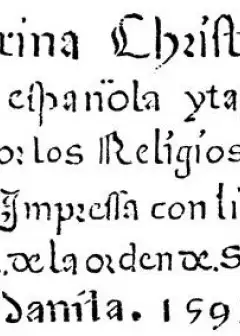 rina Chriſt
eſpañola yta
or los Religios
Impreſſa con li
.de la orden de.S
Manila. 159